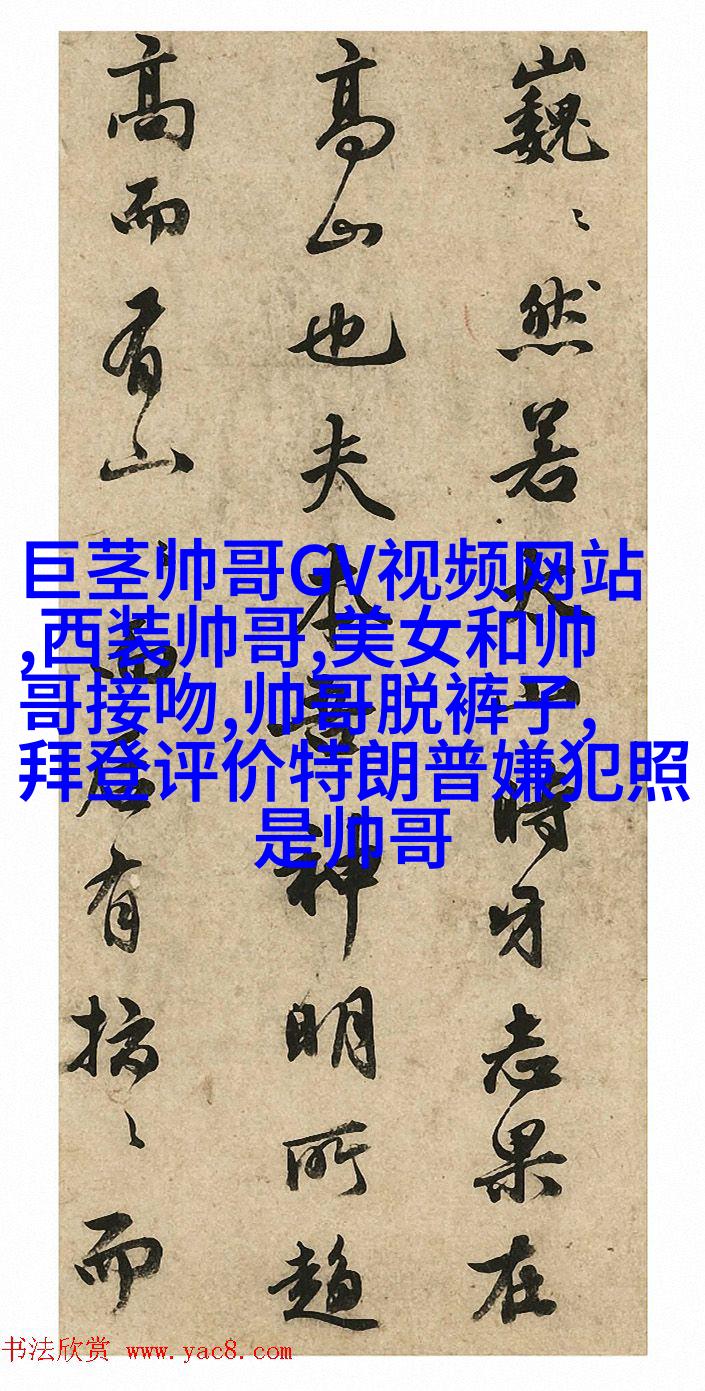 巍〻然若太山時牙志果在
高山也夫本吾神明所趨
高而有山〻而后有搞〻而
巨茎帅哥GV视频网站
,西装帅哥,美女和帅
哥接吻,帅哥脱裤子,
拜登评价特朗普嫌犯照
是帅哥
书法欣赏 www.yac8.com